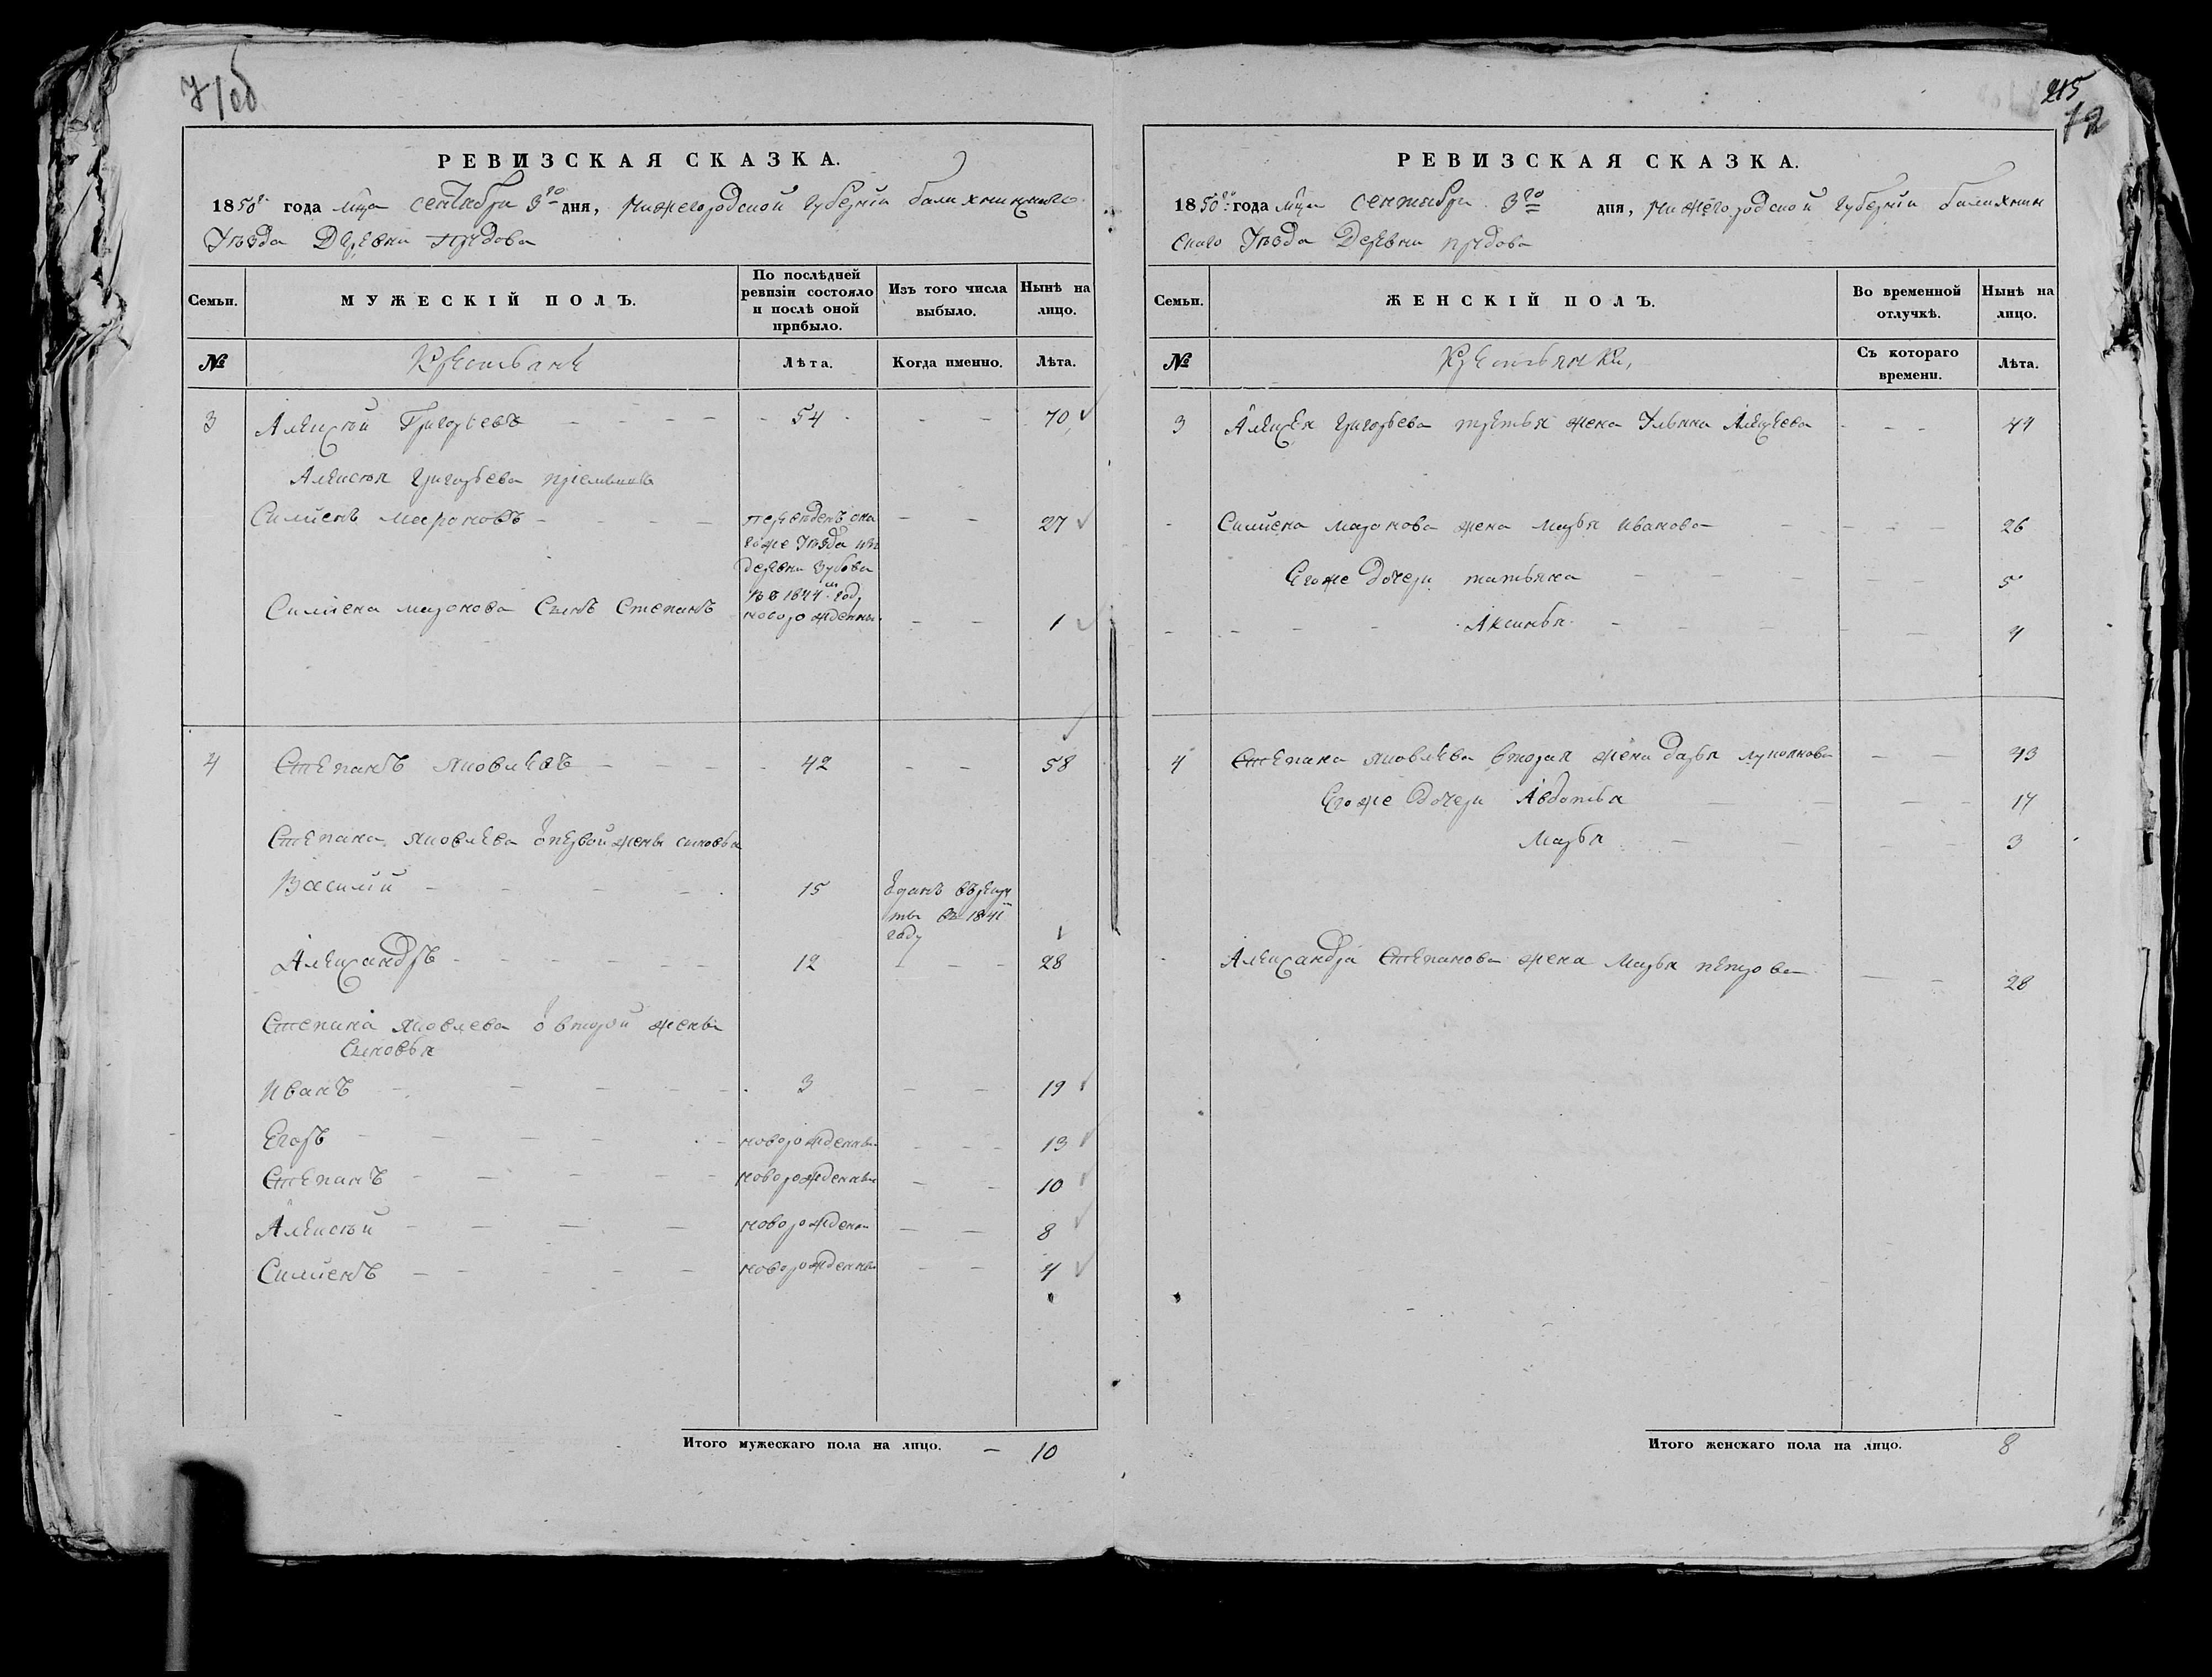 71об
РЕВИЗСКАЯ СКАЗКА.
1850го года мца сентября 3го дня, Нижегородской губернiи балахнинскаго
Уѣзда Деревни прудова
Семьи.
МУЖЕСКІЙ ПОЛЪ.
По послѣдней ревизіи состояло и послѣ оной прибыло.
Изъ того числа выбыло.
Нынѣ на лицо.
№
Крестьяне
Лѣта.
Когда именно.
Лѣта.
3 Алексѣй Григорьевъ - - - - 54 - - - 70
Алексѣя григорьева приемышъ
Симиенъ мароновъ - - - переведенъ она - - 27
гоже Уѣзда изъ
деревни Зубова
въ 1844м году
Симиена маронова Сынъ Степанъ новорожденны - - 1
4 Степанъ яковлевъ - - - - 42 - - 58
Степана яковлева о первой жены сыновья
Василiй - - - - 15 Оданъ врекру
ты въ 1841м
году
Александръ - - - - - - 12 - - - 28
Степана яковлева о второй жены
Сыновья
Иванъ - - - - - 3 - - 19
Егоръ - - - - - новорожденны - - - 13
Степанъ - - - - - новорожденны - - 10
Алексѣй - - - - новорожден - - 8
Симиенъ - - - - - новорожденны - - 4
Итого мужескаго пола на лицо. - 10
215
72
РЕВИЗСКАЯ СКАЗКА.
1850го года мца Сентября 3го дня, Нижегородской губернiи балахнин
скаго Уѣзда Деревни прудова
Семьи.
ЖЕНСКІЙ ПОЛЪ.
Во временной отлучкѣ.
Нынѣ на лицо.
№
Крестьянки,
Съ котораго времени.
Лѣта.
3 Алексея григорьева третья жена Ульяна Алексеева - - - 49
- Симиена маронова жена марья иванова - - - 26
Егоже Дочери татьяна - - - 5
- - - - Аксинья - - - - 4
4 Степана яковлева вторая жена дарья - - 43
Егоже дочери Авдотья - - - - 17
Марья - - - - 3
- Александра Степанова жена Марья петрова - - 28
Итого женскаго пола на лицо. 8